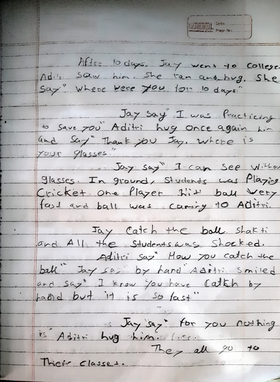 After 10 days. Jay went to college
Aditi saw him. She ran and hug. She
Say" where were you for 10 days"
Jay say" I was Practicing
to save you" Aditri hug once again him
and say" Thank you Jay. Where is
your glasses."
Jay say" I can see without
glasses. In ground, students was Playing
Cricket one Player hit ball very
fast and ball was coming to Aditri.
Jay Catch the ball shakti
and All the Students was Shocked.
Aditri say" How you catch the
ball" Jay say by hand" Aditri Smiled
and say" I know you have Catch by
hand but it is so fast"
Jay say" for you nothing
is" Aditri hug him.
They all go to
Their classes.